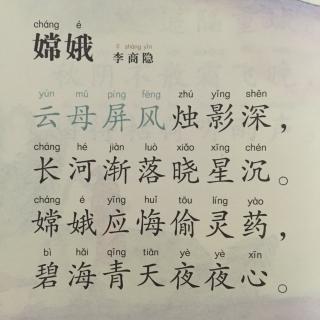 cháng é
嫦娥
lǐ shāng yǐn
李商隐
yún mǔ píng fēng zhú yǐng shēn
云母屏风烛影深，
cháng hé jiàn luò xiǎo xīng chén
长河渐落晓星沉。
cháng é yīng huǐ tōu líng yào
嫦娥应悔偷灵药，
bì hǎi qīng tiān yè yè xīn
碧海青天夜夜心。